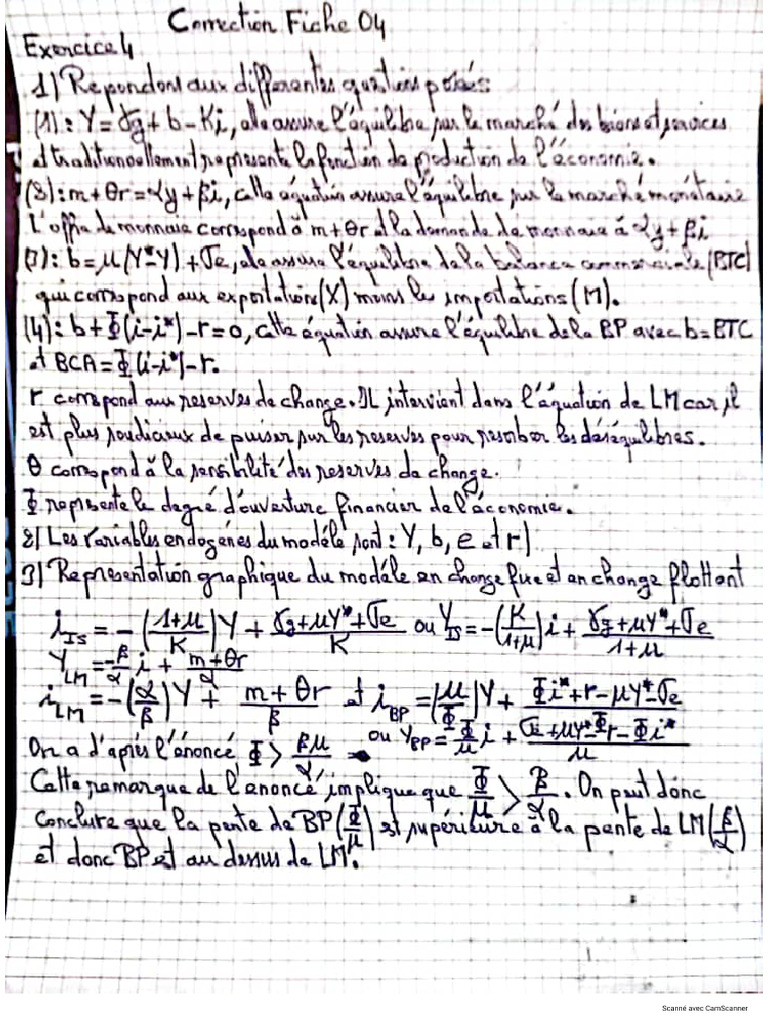 Correction Fiche 04
Exercice 4
1) Repondons aux differentes questions posées
(1): Y = γg + b - Ki, elle assure l'équilibre sur le marché des biens et services
et traditionnellement represente la fonction de production de l'économie.
(2): m + θr = αy + βi, cette équation assure l'équilibre sur le marché monétaire
L'offre de monnaie correspond à m + θr et la demande de monnaie à αy + βi
(3): b = μ(Y* - Y) + σe, elle assure l'équilibre de la balance commerciale (BTC)
qui correspond aux exportations (X) moins les importations (M).
(4): b + Φ(i - i*) - r = 0, cette équation assure l'équilibre de la BP avec b = BTC
et BCA = Φ(i - i*) - r.
r correspond aux reserves de change. IL intervient dans l'équation de LM car il
est plus judicieux de puiser sur les reserves pour resorber les déséquilibres.
θ correspond à la sensibilité des reserves de change.
Φ represente le degré d'ouverture financier de l'économie.
2) Les variables endogénes du modéle sont : Y, b, e et r)
3) Representation graphique du modéle en change fixe et en change flottant
i_IS = -((1+μ)/K)Y + (γg + μY* + σe)/K ou Y_IS = -(K/(1+μ))i + (γg + μY* + σe)/(1+μ)
Y_LM = -(β/α)i + (m + θr)/α
i_LM = -(α/β)Y + (m + θr)/β et i_BP = (μ/Φ)Y + (Φi* + r - μY* - σe)/Φ
ou Y_BP = (Φ/μ)i + (σe + μY* - Φr - Φi*)/μ
On a d'aprés l'énoncé Φ > βμ/α
Cette remarque de l'enoncé implique que Φ/μ > β/α. On peut donc
conclure que la pente de BP (Φ/μ) est supérieure à la pente de LM (β/α)
et donc BP est au dessus de LM.
Scanné avec CamScanner